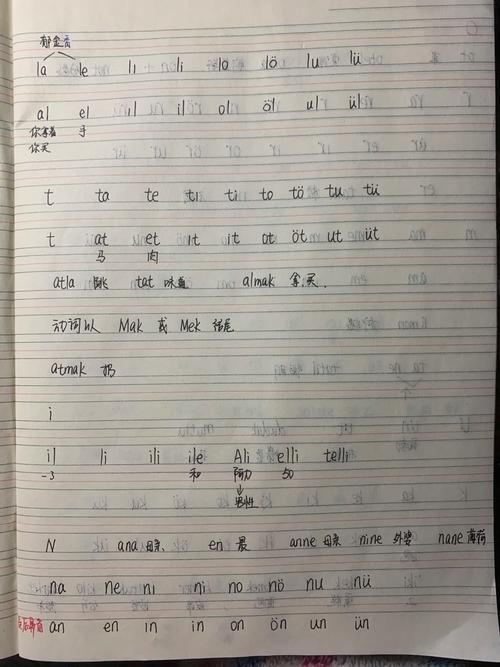 郁金香
la le lı li lo lö lu lü
al el ıl il ol öl ul ül
你拿着 手
你买
t ta te tı ti to tö tu tü
t at et ıt it ot öt ut üt
马 肉
atla 跳 tat 味道 almak 拿.买.
动词以 Mak 或 Mek 结尾
atmak 扔
i
il li ili ile Ali elli telli
和 阿力 50
男性
N ana 母亲. en 最 anne 母亲 nine 外婆 nane 薄荷
na ne nı ni no nö nu nü
an en ın in on ön un ün